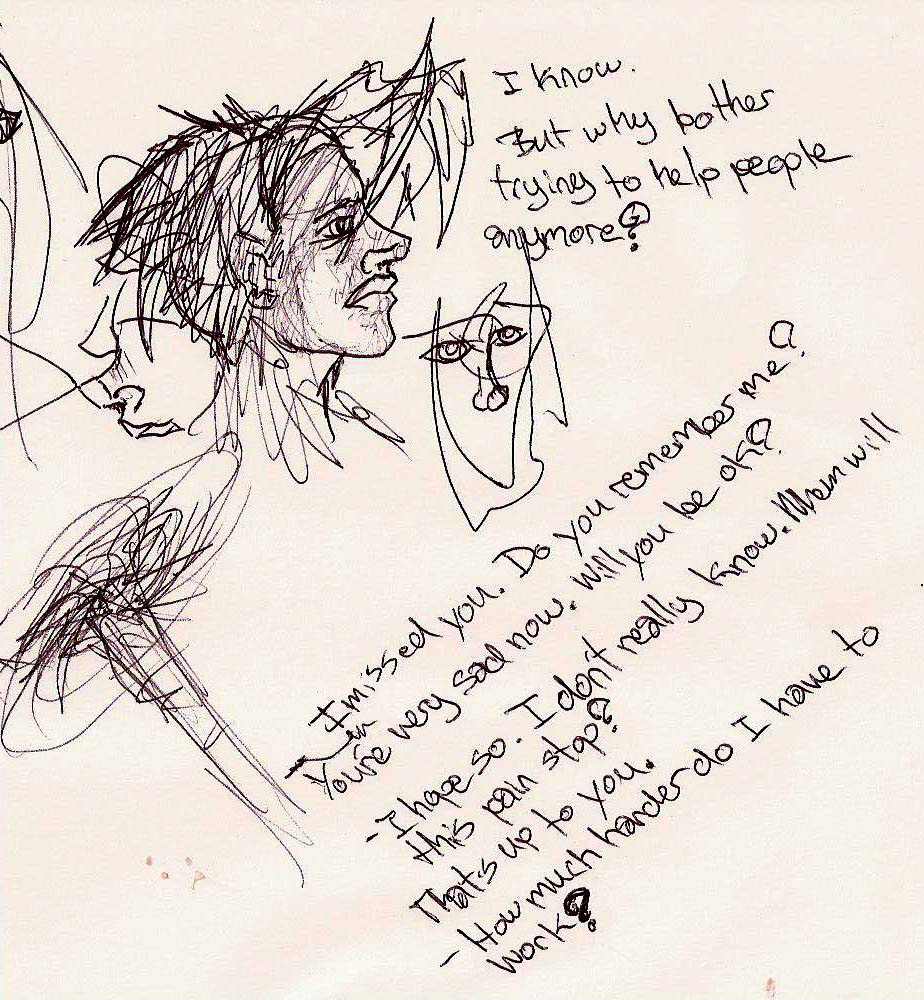 I know.
But why bother
trying to help people
anymore?
I missed you. Do you remember me?
You're very sad now. Will you be ok?
- I hope so. I don't really know. When will
this pain stop?
That's up to you.
- How much harder do I have to
work?